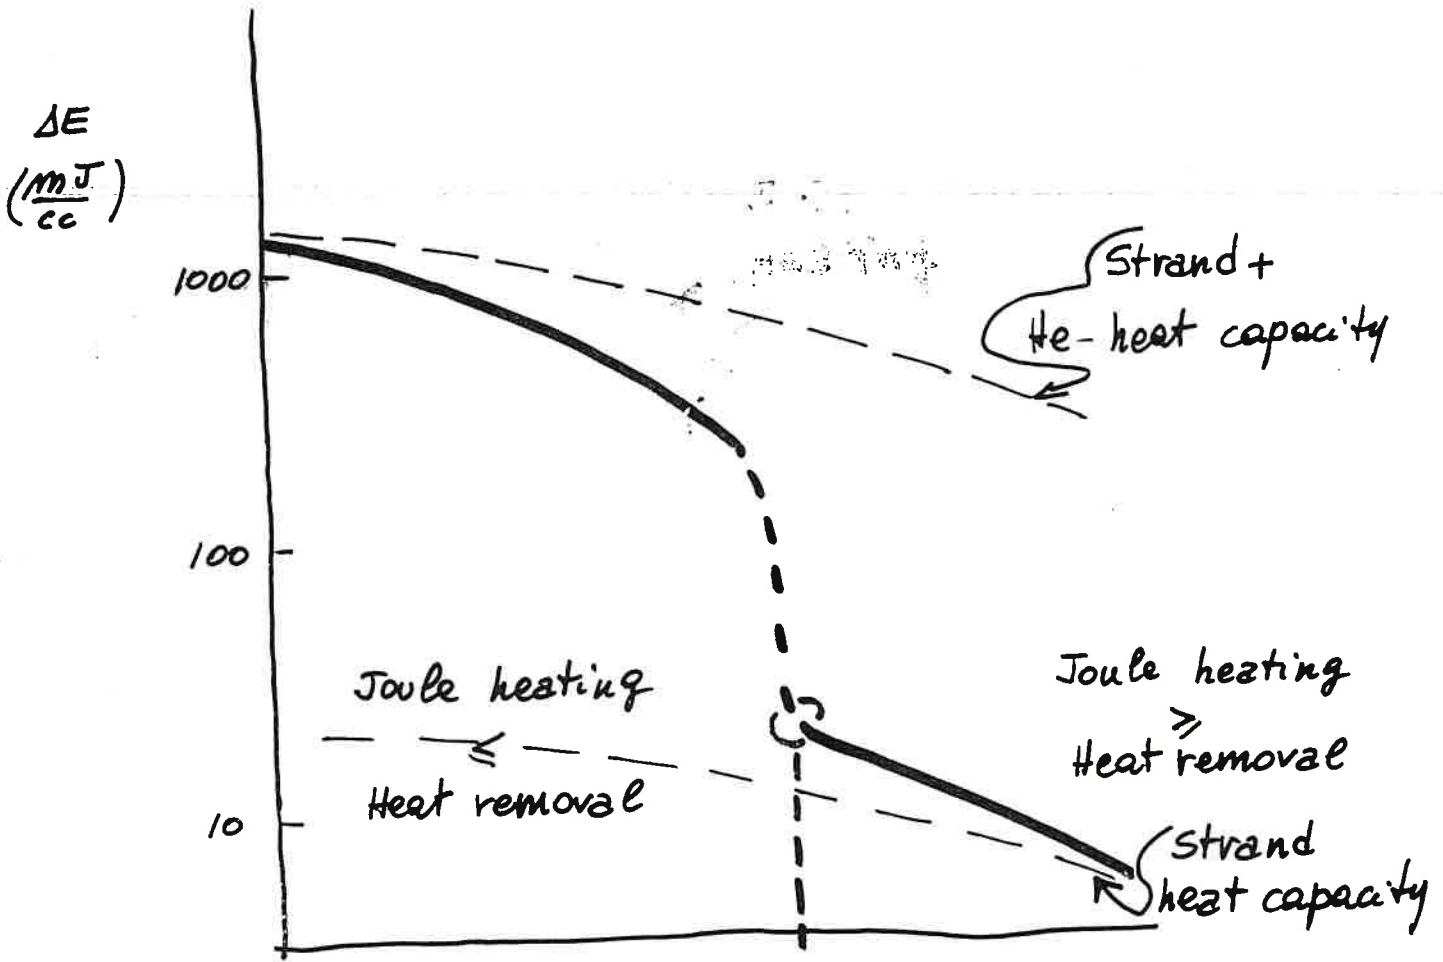 ΔE
(mJ
cc)
1000
100
10
Strand +
He-heat capacity
Joule heating
≤
Heat removal
Joule heating
≥
Heat removal
Strand
heat capacity